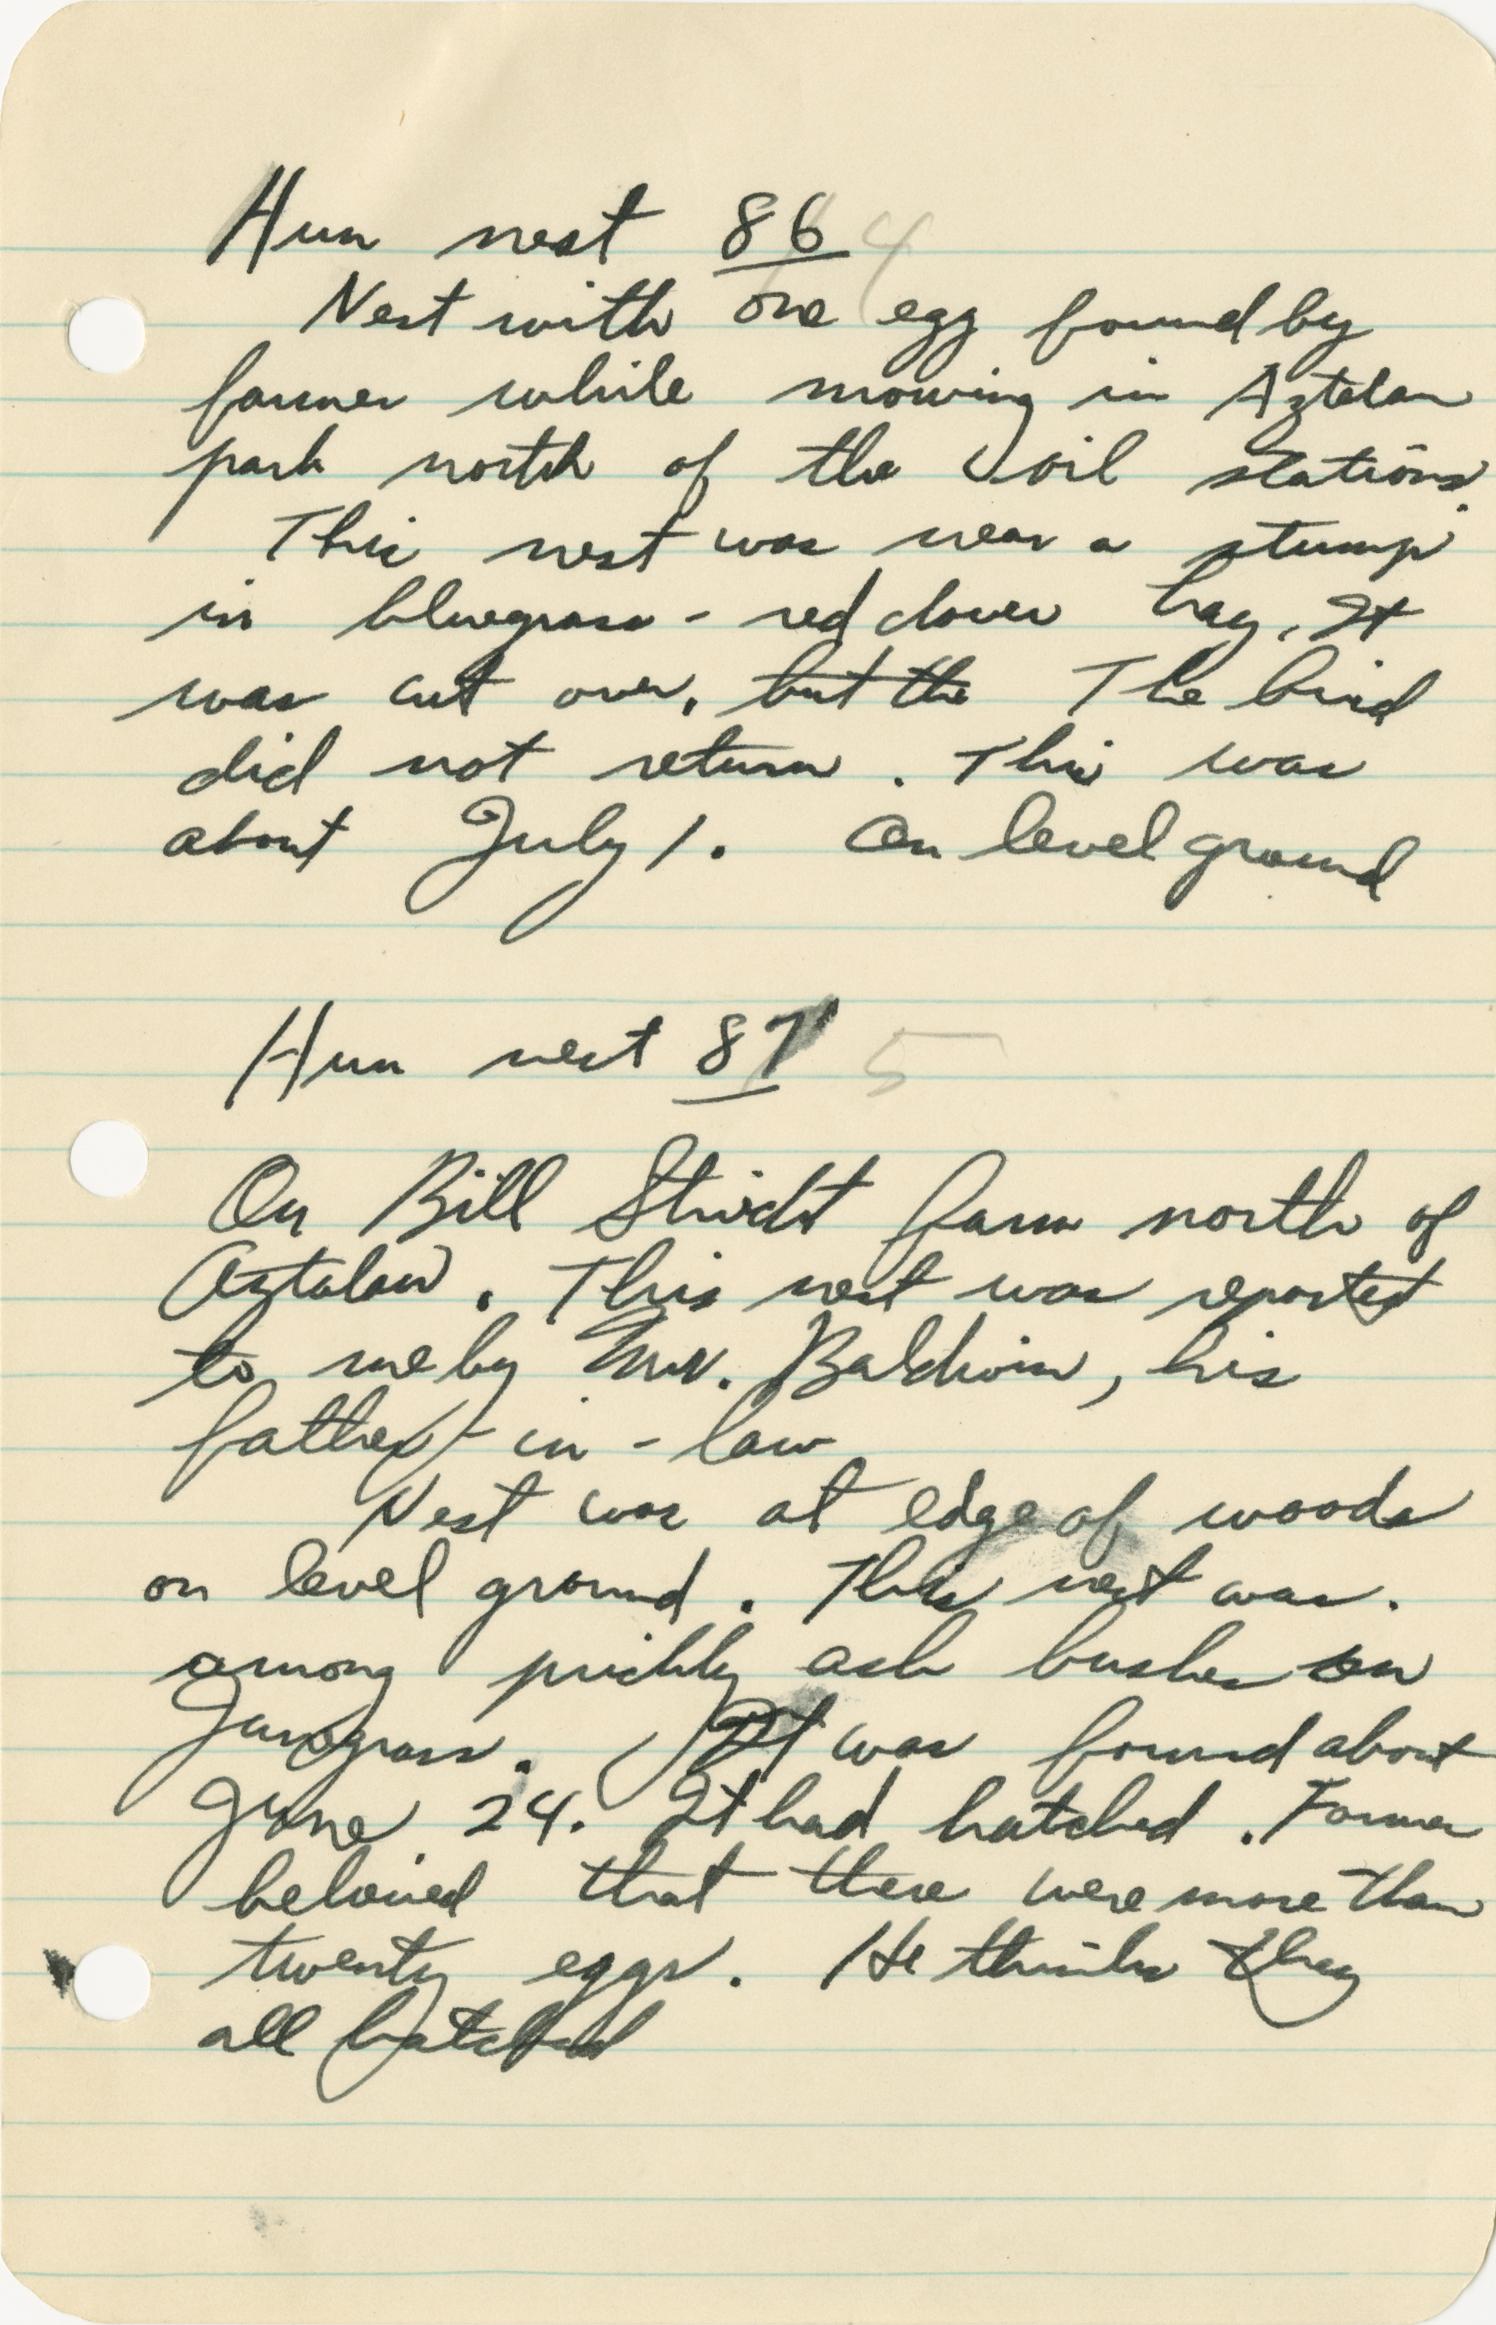 Hun nest 86 4
Nest with one egg found by
farmer while mowing in Aztalan
park north of the oil stations.
This nest was near a stump
in bluegrass - red clover hay. It
was cut over, but the The bird
did not return. This was
about July 1. On level ground
Hun nest 87 5
On Bill farm north of
Aztalan. This nest was reported
to me by Mr. Baldwin, his
father-in-law
Nest was at edge of woods
on level ground. This nest was.
among prickly ash bushes on
Junegrass. It was found about
June 24. It had hatched. Farmer
beleived that there were more than
twenty eggs. He thinks they
all hatched